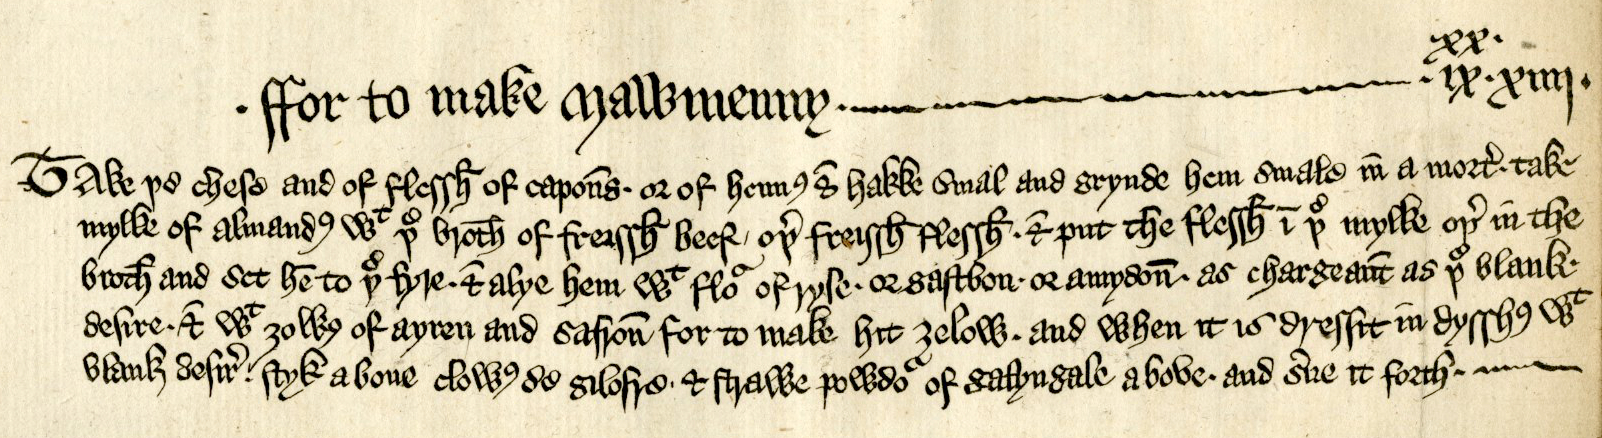 .xx.
.ffor to make Mawmenny. .ix.xiiij.
TAke þe chese and of flessh of capons. or of hennꝰ & hakke smal and grynde hem smale in a morter. take
mylke of almandꝰ wt þe broth of freissh beef, oþer freissh flessh. & put the flessh ī þe mylke oþer in the
broth and set hē to þe fyre. & alye hem wt floa of ryse. or gastbon. or amydon. as chargeant as þe blank
desire. & wt ȝolkꝰ of ayren and safron for to make hit ȝelow. and when it is dressit in dysshꝰ wt
blank desire. styk above clowꝰ de gilofre. & strawe powdoa of galyngale above. and sue it forth.